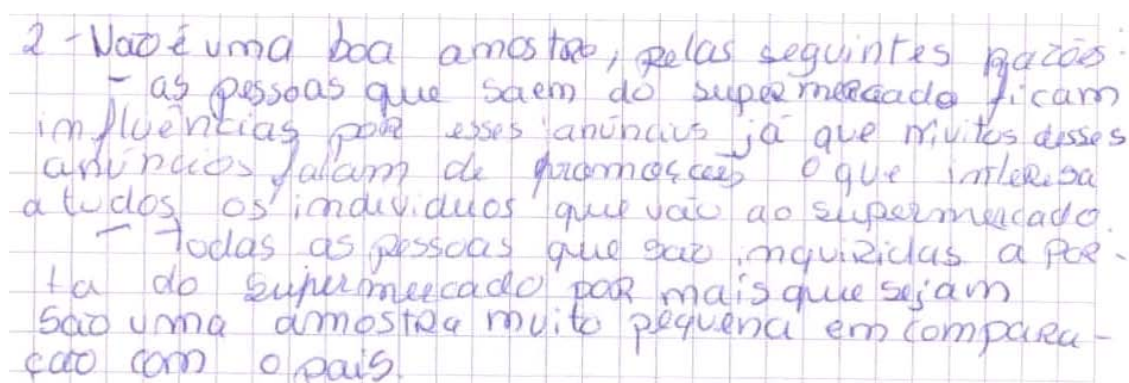 2 - Não é uma boa amostra, pelas seguintes razões:
- as pessoas que saem do supermercado ficam
influências por esses anúncios já que muitos desses
anúncios falam de promoções o que interesa
a todos os individuos que vão ao supermercado.
- Todas as pessoas que são inquiridas a por-
ta do supermercado por mais que sejam
são uma amostra muito pequena em compara-
ção com o pais.